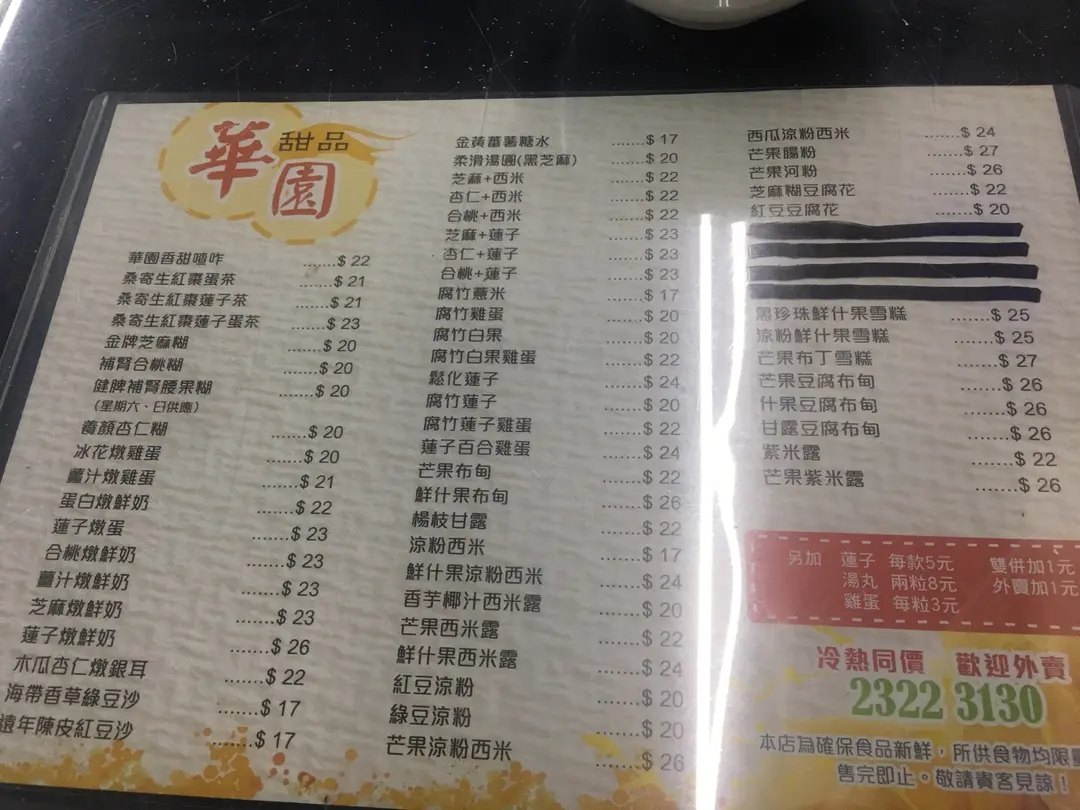 華園 甜品
華園香甜嗱咋 .......$ 22
桑寄生紅棗蛋茶 .......$ 21
桑寄生紅棗蓮子茶 .......$ 21
桑寄生紅棗蓮子蛋茶 .......$ 23
金牌芝麻糊 .......$ 20
補腎合桃糊 .......$ 20
健脾補腎腰果糊 .......$ 20
(星期六、日供應)
養顏杏仁糊 .......$ 20
冰花燉雞蛋 .......$ 20
薑汁燉雞蛋 .......$ 21
蛋白燉鮮奶 .......$ 22
蓮子燉蛋 .......$ 23
合桃燉鮮奶 .......$ 23
薑汁燉鮮奶 .......$ 23
芝麻燉鮮奶 .......$ 23
蓮子燉鮮奶 .......$ 26
木瓜杏仁燉銀耳 .......$ 22
海帶香草綠豆沙 .......$ 17
遠年陳皮紅豆沙 .......$ 17
金黃蕃薯糖水 .......$ 17
柔滑湯圓(黑芝麻) .......$ 20
芝麻+西米 .......$ 22
杏仁+西米 .......$ 22
合桃+西米 .......$ 22
芝麻+蓮子 .......$ 23
杏仁+蓮子 .......$ 23
合桃+蓮子 .......$ 23
腐竹薏米 .......$ 17
腐竹雞蛋 .......$ 20
腐竹白果 .......$ 20
腐竹白果雞蛋 .......$ 22
鬆化蓮子 .......$ 24
腐竹蓮子 .......$ 20
腐竹蓮子雞蛋 .......$ 22
蓮子百合雞蛋 .......$ 24
芒果布甸 .......$ 22
鮮什果布甸 .......$ 26
楊枝甘露 .......$ 22
涼粉西米 .......$ 17
鮮什果涼粉西米 .......$ 24
香芋椰汁西米露 .......$ 20
芒果西米露 .......$ 22
鮮什果西米露 .......$ 24
紅豆涼粉 .......$ 20
綠豆涼粉 .......$ 20
芒果涼粉西米 .......$ 26
西瓜涼粉西米 .......$ 24
芒果腸粉 .......$ 27
芒果河粉 .......$ 26
芝麻糊豆腐花 .......$ 22
紅豆豆腐花 .......$ 20
黑珍珠鮮什果雪糕 .......$ 25
涼粉鮮什果雪糕 .......$ 25
芒果布丁雪糕 .......$ 27
芒果豆腐布甸 .......$ 26
什果豆腐布甸 .......$ 26
甘露豆腐布甸 .......$ 26
紫米露 .......$ 22
芒果紫米露 .......$ 26
另加 蓮子 每款5元 雙併加1元
湯丸 兩粒8元 外賣加1元
雞蛋 每粒3元
冷熱同價 歡迎外賣
2322 3130
本店為確保食品新鮮，所供食物均限量
售完即止。敬請貴客見諒！